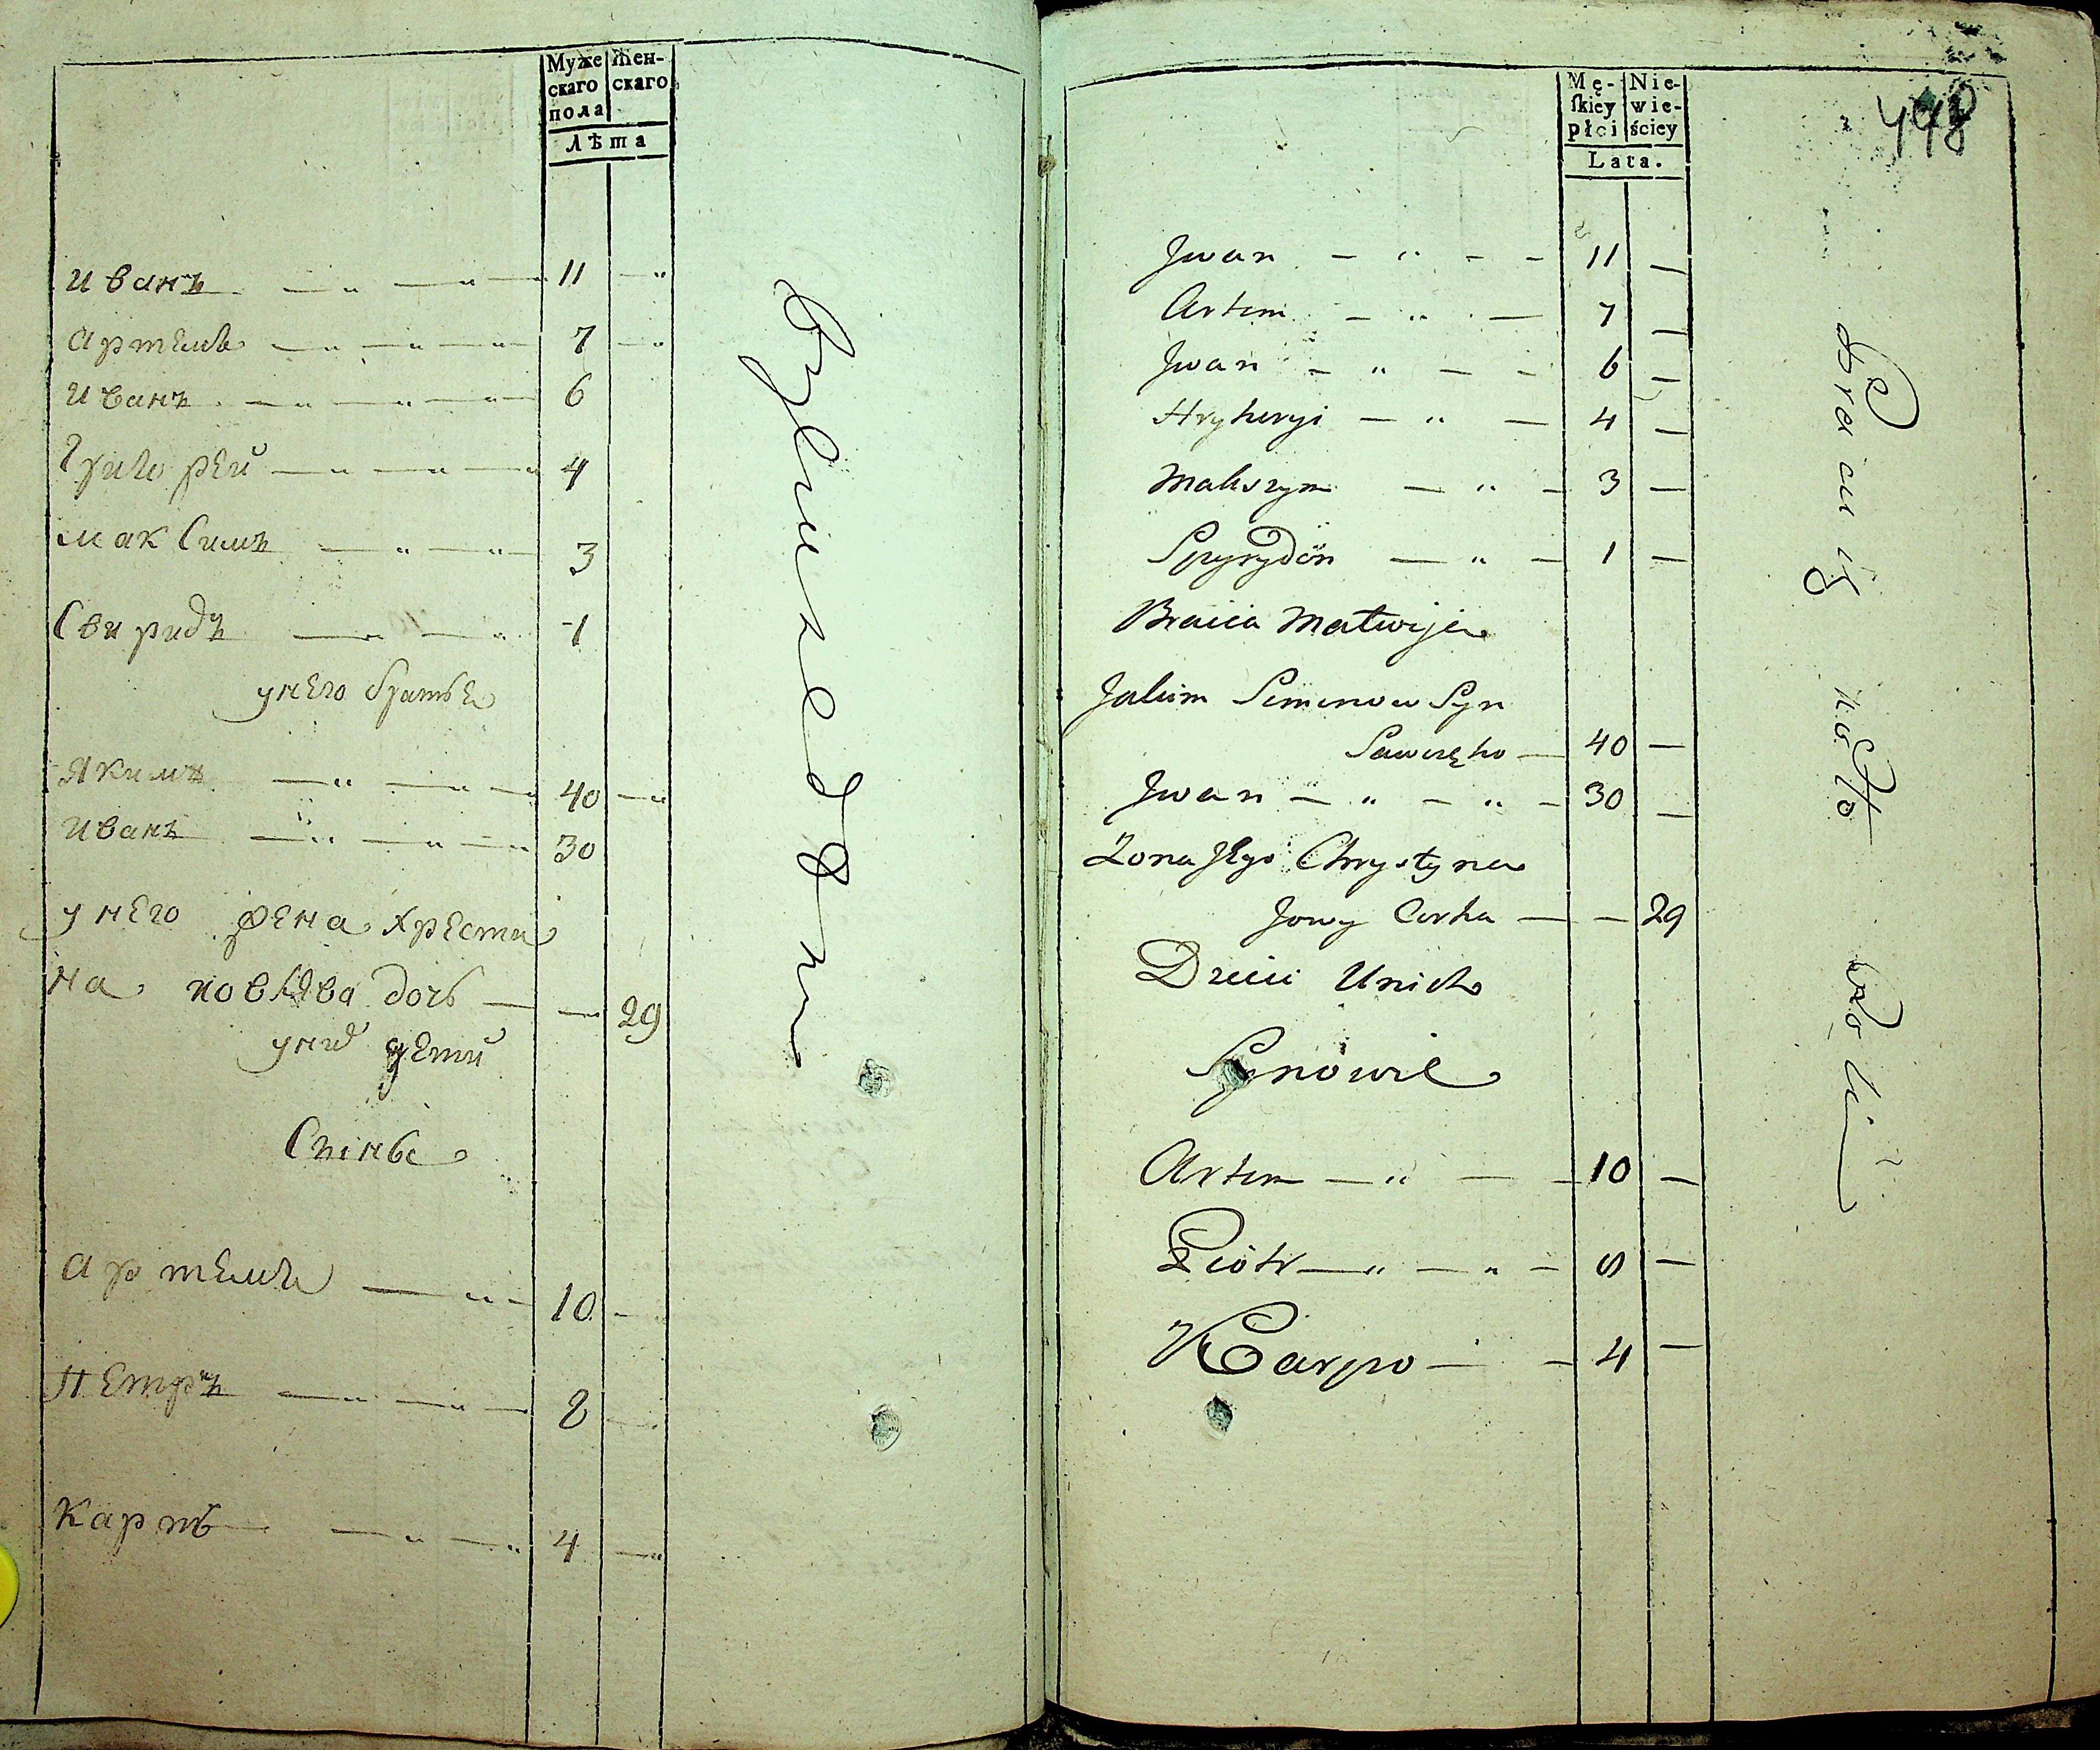 Муже
скаго
пола
Жен-
скаго
лѣта
иванъ 11
артемъ 7
иванъ 6
григорей 4
максимъ 3
Свиридъ 1
унего братьа
Якимъ 40
иванъ 30
унего жена хрести
на иовлѣва дочь 29
уних дети
Сыньа
артемъ 10
петръ 8
карпъ 4
Mę-
skiey
płci
Nie-
wie-
ściey
Lata.
448
Jwan 11
Artem 7
Jwan 6
Hryhoryi 4
Maksym 3
Spyrydön 1
Bracia Matwija
Jakim Semenow Syn
40
Jwan 30
Zona Jego Chrystyna
Jowy Corka 29
Dzieci Unich
Synowie
Artem 10
Piotr 8
Karpo 4